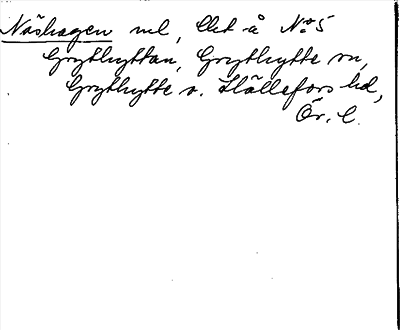 Näshagen vel, Det å No 5
Grythyttan, Grythytte sn,
Grythytte o. Hällefors hd,
Ör. l.